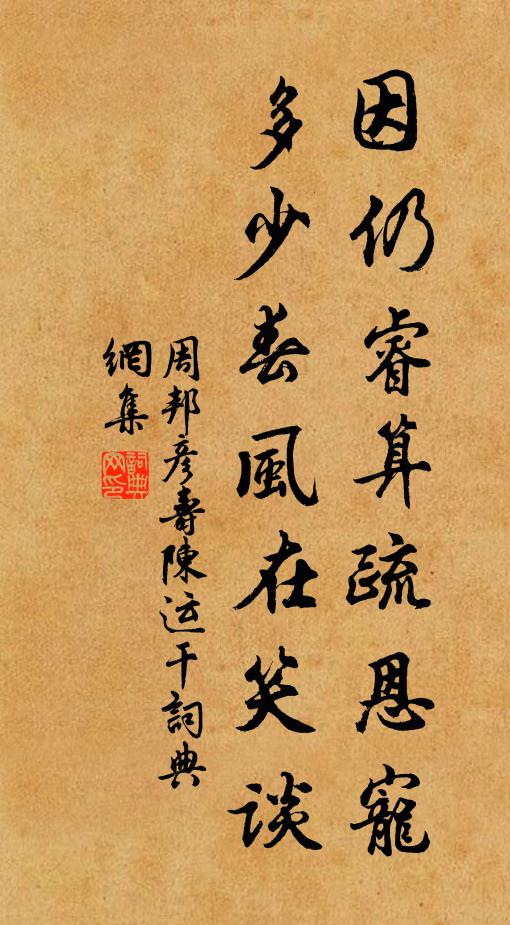 因仍睿算疏恩寵
多少春風在笑談
周邦彥壽陳运干詞典
網集
詞典
网印